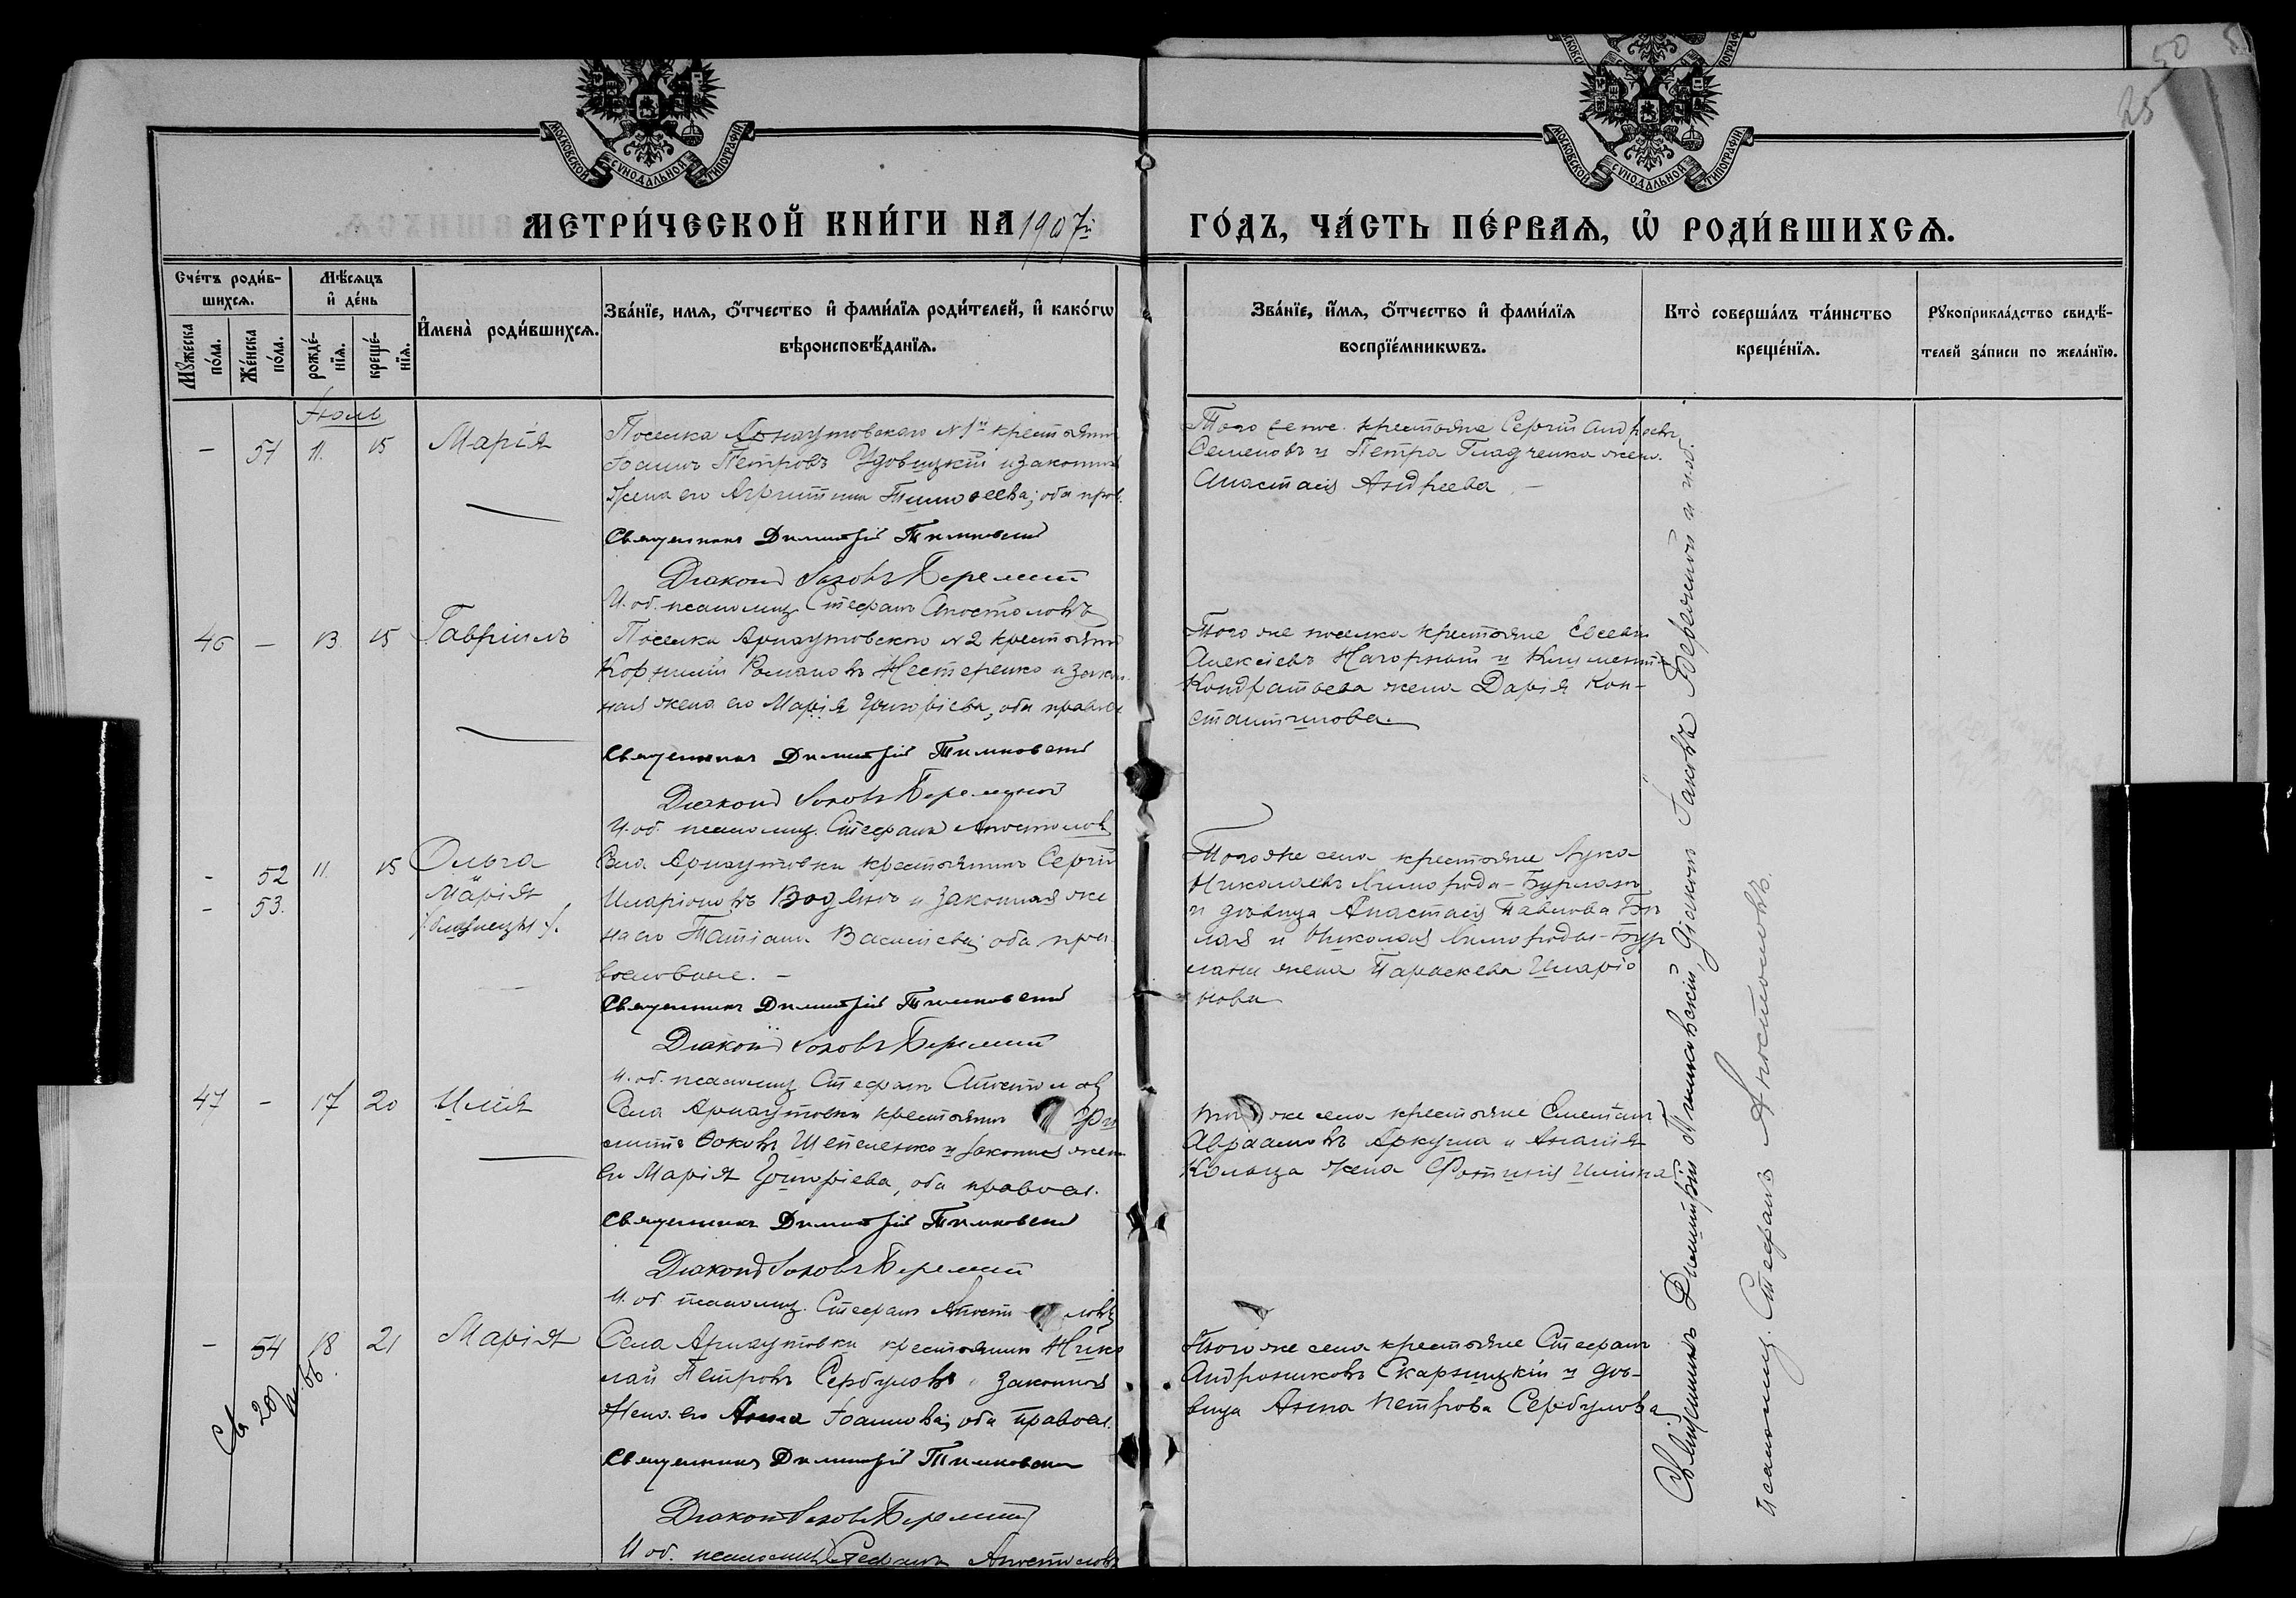 50
25
МОСКОВСКОЙ СѴНОДАЛЬНОЙ ТИПОГРАФІИ
МОСКОВСКОЙ СѴНОДАЛЬНОЙ ТИПОГРАФІИ
МЕТРИ́ЧЕСКОЙ КНИ́ГИ НА 1907й ГО́ДЪ, ЧА́СТЬ ПЕ́РВАѦ, Ѡ҆ РОДИ́ВШИХСѦ.
Сче́тъ роди́в-
шихсѧ.
Мꙋ́жеска по́ла.
Же́нска по́ла.
Мѣ́сѧцъ
и҆ де́нь
рожде́-нїѧ.
креще́-нїѧ.
И҆мена̀ роди́вшихсѧ.
Зва́нїе, имѧ, ѻ҆́тчество и҆ фами́лїѧ роди́телей, и҆ како́гѡ
вѣроисповѣ́данїѧ.
Зва́нїе, и҆́мѧ, ѻ҆́тчество и҆ фами́лїѧ
воспрїе́мникѡвъ.
Кто̀ соверша́лъ та́инство
креще́нїѧ.
Рꙋкоприкла́дство свидѣ́-
телей за́писи по жела́нїю.
Іюль
- 51 11. 15 Марія
Поселка Арнаутовскаго №1й крестьянинъ
Іоаннъ Петровъ Удовицкій и законная
жена его Агриппина Тимоѳеева; оба прав.
Священникъ Димитрій Тимковскій
Діаконъ Іаковъ
И. об. псаломщ. Стефанъ Апостоловъ
Того же крестьяне Сергій Андреевъ
Семеновъ и Петра Гладченка жена
Анастасія Андреева
46 - 13. 15 Гавріилъ
Поселка Арнаутовскаго №2 крестьянинъ
Корнилій Романовъ Нестеренко и закон-
ная жена его Марія Григоріева, оба правосл
Священникъ Димитрій Тимковскій
Діаконъ Іаковъ
И. об. псаломщ. Стефанъ Апостоловъ
Того же поселка крестьяне Евсевій
Алексіевъ Нагорный и Климентія
Кондратьева жена Дарія Кон-
стантинова.
- 52 11. 15 Ольга
- 53. Марія
/:близнецы:/.
Села Арнаутовки крестьянинъ Сергій
Иларіоновъ Водянъ и законная же
на его Татіана Васильева; оба пра
вославные. -
Священникъ Димитрій Тимковскій
Діаконъ Іаковъ
И. об. псаломщ. Стефанъ Апостоловъ
Того же села крестьяне Лука
Николаевъ Лимогрода-Бурлака
и дѣвица Анастасія Павлова Бѣ
лая и Николая Лимогроды-Бур
лаки жена Параскева Иларіо
нова
47 - 17 20 Илія
Села Арнаутовки крестьянинъ
Ѳоковъ Шепеленко и законная жена
его Марія Григоріева, оба правосл.
Священникъ Димитрій Тимковскій
Діаконъ Іаковъ
И. об. псаломщ. Стефанъ Апостоловъ
того же села крестьяне
Авраамовъ Аркуша и Ананія
Кольца жена Фотинія Иліина
- 54 18 21 Марія
Села Арнаутовки крестьянинъ Нико
лай Петровъ Сербуловъ и законная
жена его Анна Іоаннова; оба правосл.
Священникъ Димитрій Тимковскій
Діаконъ Іаковъ
И об. псаломщ Стефанъ Апостоловъ
Того же села крестьяне Стефанъ
Андрониковъ Скаржицкій и дѣ-
вица Анна Петрова Сербулова
Священникъ Димитрій Тимковскій, діаконъ Іаковъ и и. об.
псаломщ. Стефанъ Апостоловъ.